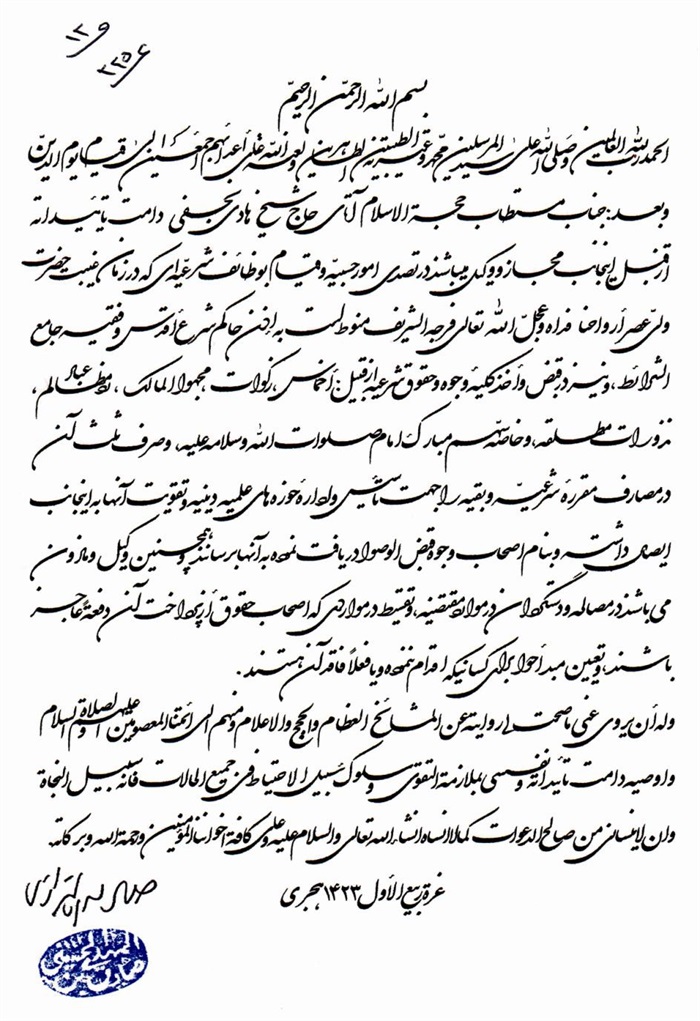 ۱۲۹
۲۲۵۶
بسم الله الرحمن الرحیم
الحمدلله رب العالمین وصلی الله علی سید المرسلین محمد وعترته الطیبین الطاهرین ولعنة الله علی أعدائهم أجمعین إلی قیام یوم الدین
وبعد: جناب مستطاب حجة الاسلام آقای حاج شیخ هادی نجفی دامت تأییداته
از قبل اینجانب مجاز و وکیل میباشند در تصدی امور حسبیه و قیام بوظائف شرعیه‌ای که در زمان غیبت حضرت
ولی عصر أرواحنا فداه وعجل الله تعالی فرجه الشریف منوط است به إذن حاکم شرع أقدس و فقیه جامع
الشرائط، و نیز در قبض و أخذ کلیه وجوه و حقوق شرعیه از قبیل: أخماس، زکوات، مجهول المالک، رد مظالم عباد،
نذورات مطلقه، و خاصه سهم مبارک امام صلوات الله وسلامه علیه، و صرف ثلث آن
در مصارف مقرره شرعیه و بقیه را جهت تأسیس و اداره حوزه های علمیه دینیه و تقویت آنها به اینجانب
ایصال داشته و بنام اصحاب وجوه قبض الوصول دریافت نموده به آنها برسانند و همچنین وکیل و مأذون
می باشند در مصالحه و دستگردان در موارد مقتضیه، و تقسیط در مواردی که اصحاب حقوق از پرداخت آن دفعة عاجز
باشند، و تعیین مبدأ حول برای کسانیکه اقدام ننموده و یا فعلاً فاقد آن هستند.
وله أن یروی عنی ما صحت لی روایته عن المشائخ العظام والحجج والاعلام ومنهم الی ائمتنا المعصومین علیهم الصلاة والسلام
واوصیه دامت تأییداته ونفسی بملازمة التقوی وسلوک سبیل الاحتیاط فی جمیع الحالات فانه سبیل النجاة
وان لا ینسانی من صالح الدعوات کما لا أنساه انشاءالله تعالی والسلام علیه وعلی کافة اخواننا المؤمنین ورحمة الله وبرکاته.
غرة ربیع الأول ۱۴۲۳ هجری